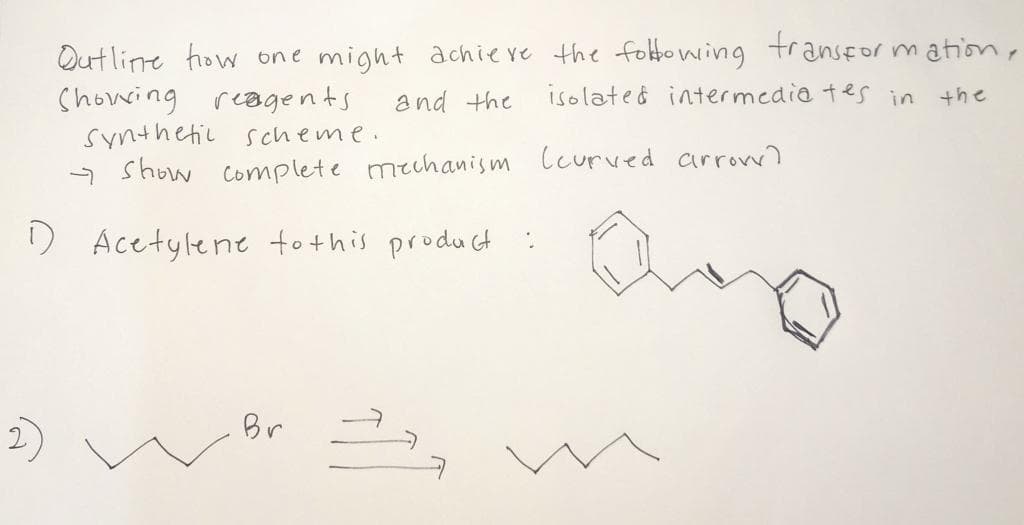 Outline how one might achieve the following transformation,
Showing reagents and the isolated intermediates in the
synthetic scheme.
→ Show complete mechanism (curved arrow)
1) Acetylene to this product :
2) Br